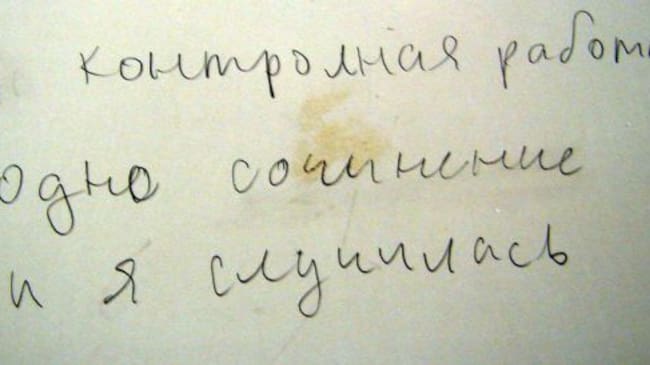 контролная работ
одно сочинение
и я случилась